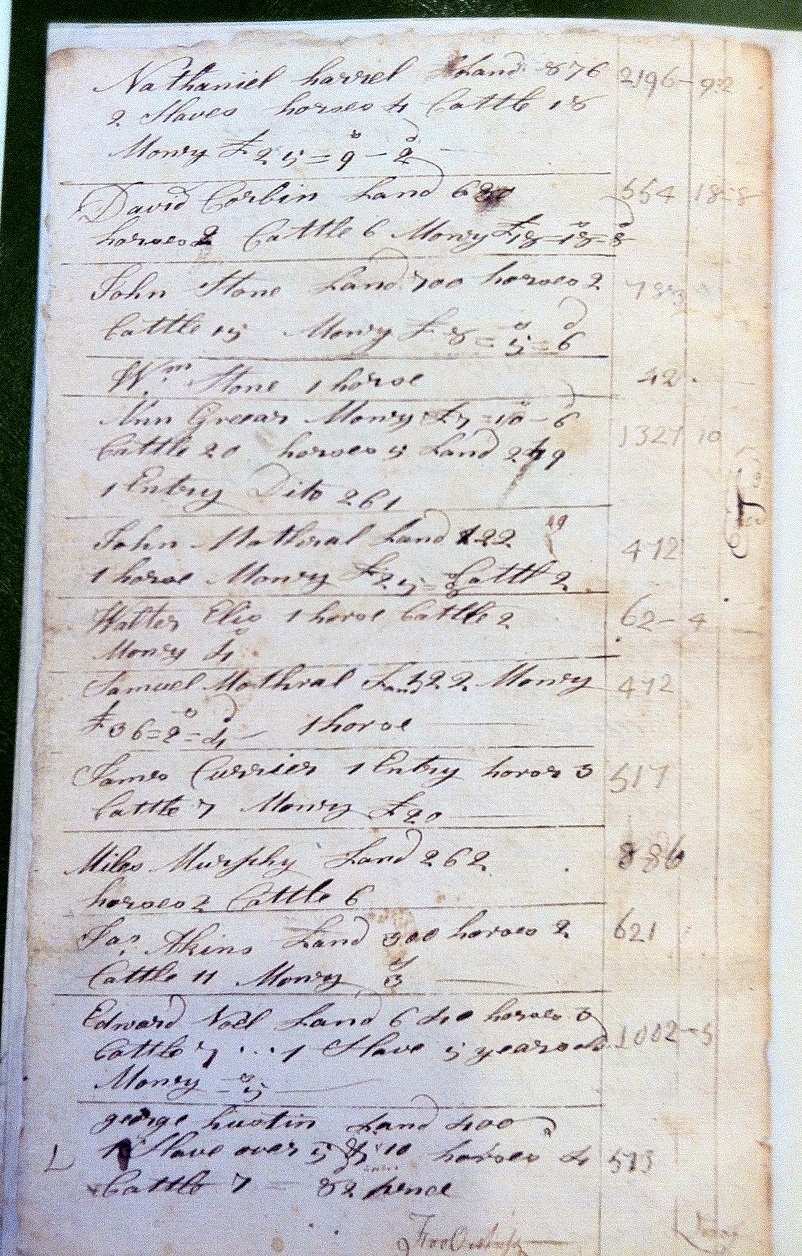 Nathaniel harrel Land 876 2196-9-2
2 Slaves horses 4 Cattle 18
Money £25=9-2
David Corbin Land 680 554 18-8
horses 2 Cattle 6 Money £18-18=8
John Stone Land 700 horses 2 783
Cattle 15 Money £8=5=6
Wm Stone 1 horse 42
Ann Greear Money £7=10-6
Cattle 20 horses 5 Land 249 1327 10
1 Entry Dito 261
John Mathral Land 122 412
1 horse Money £25= Cattle 2
Walter Elis 1 horse Cattle 2 62-4
Money 4
Samuel Mathral Land 122 Money 472
£36=2=4 1 horse
James Currier 1 Entry horses 3 517
Cattle 7 Money £20
Miles Murphy Land 262 886
horses 2 Cattle 6
Jas. Akins Land 300 horses 2 621
Cattle 11 Money 3
Edward Noel Land 640 horses 3
Cattle 7 1 Slave 5 years old 1002-5
Money =5
george hustin Land 400
1 Slave over 5 10 horses 4 513
Cattle 7 = 82 pence